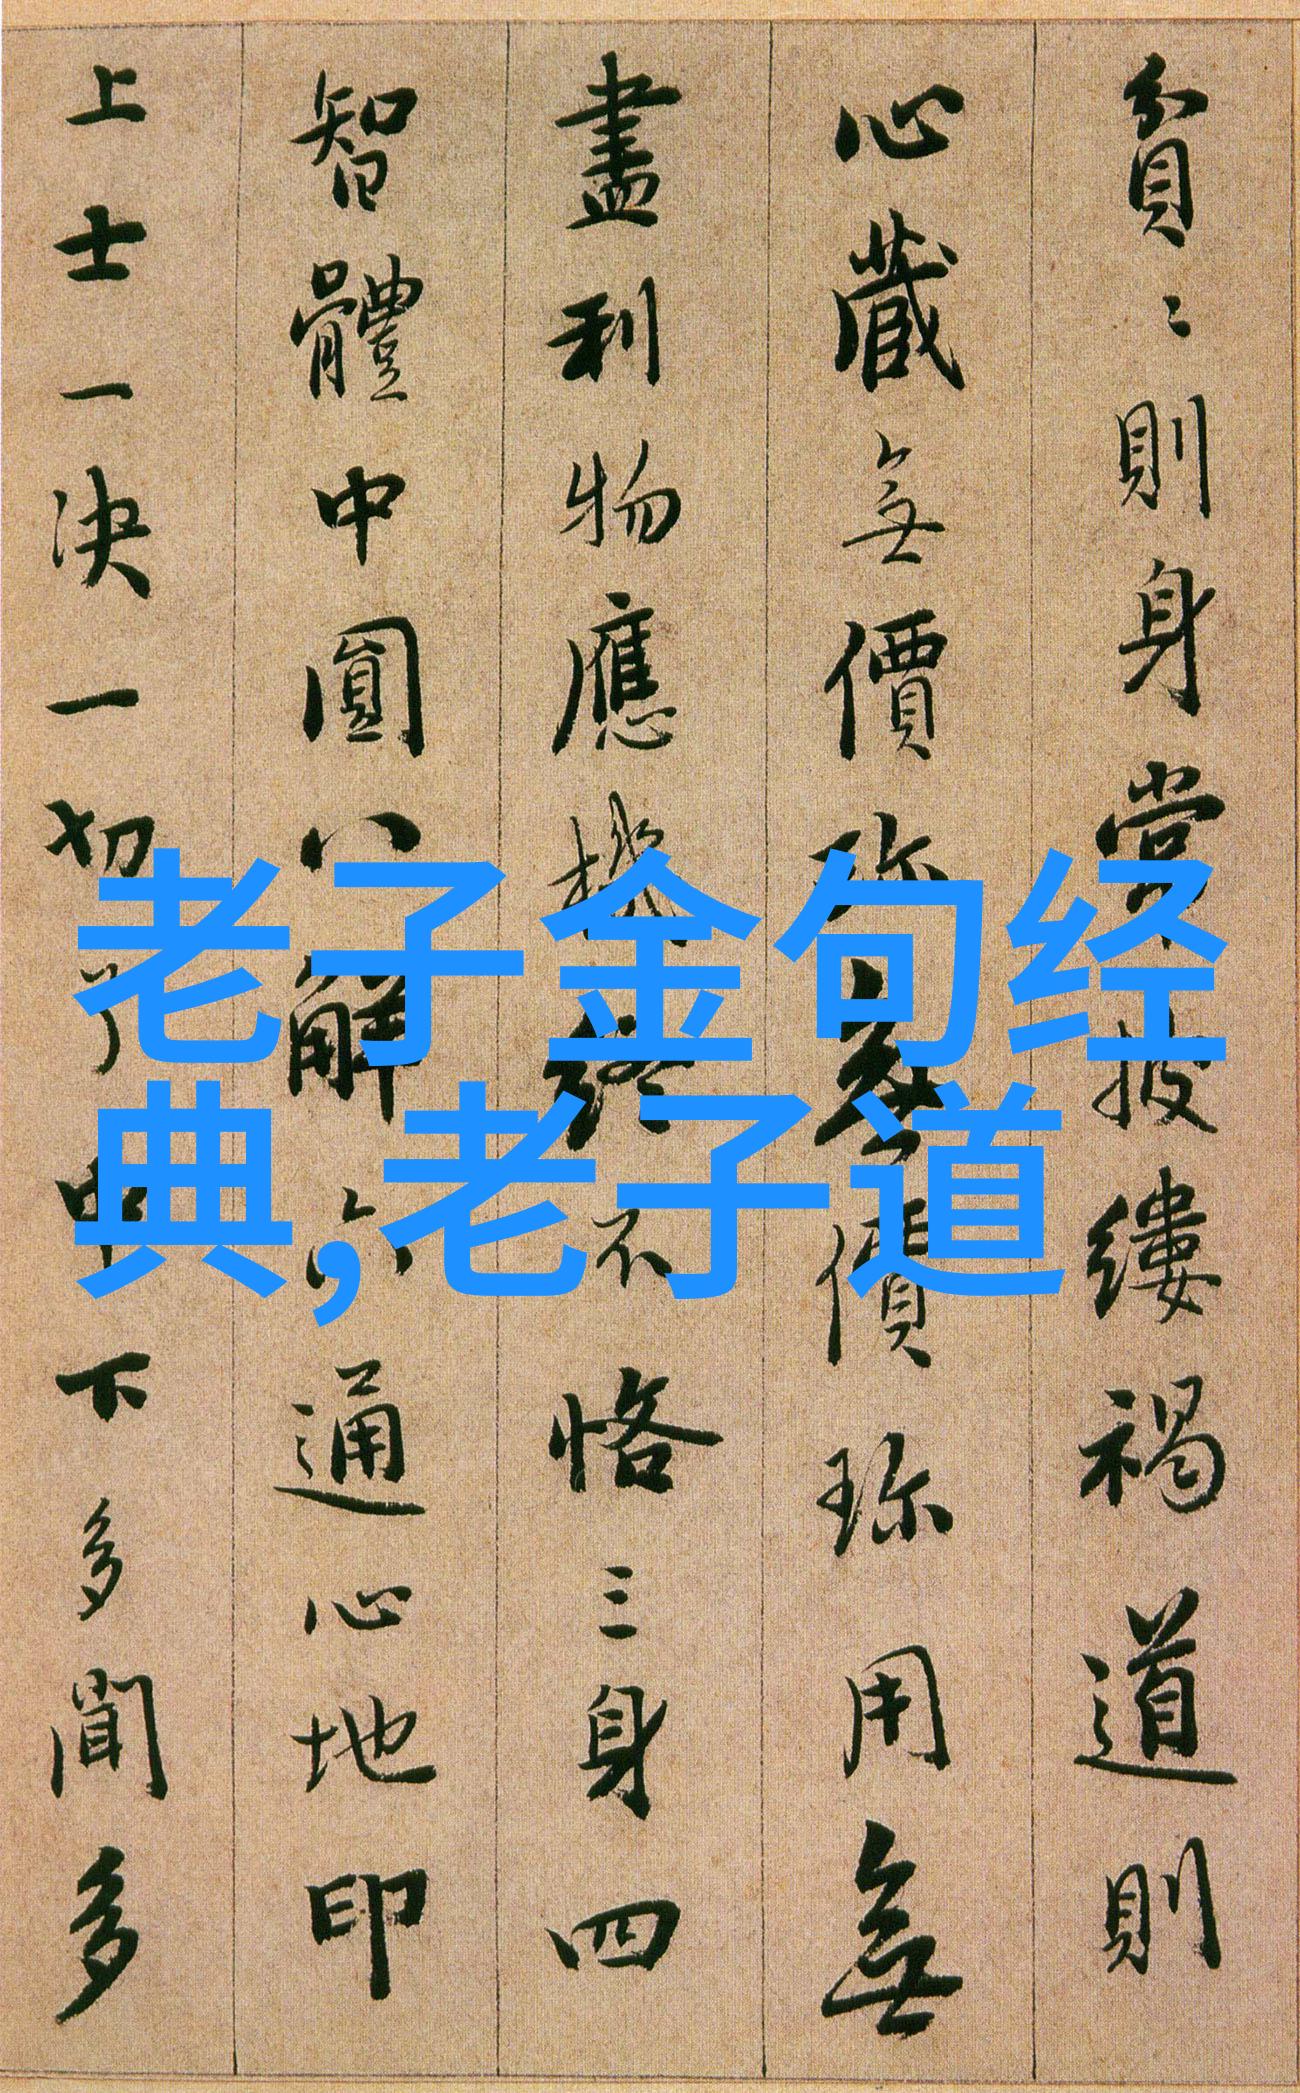 貧〻則身常披縷褐道則
心藏無價珍無價珍用無
盡利物應機終不恪三身四
智體中圓八解六通心地印
上士一決一切了中下多聞多
老子金句经
典,老子道